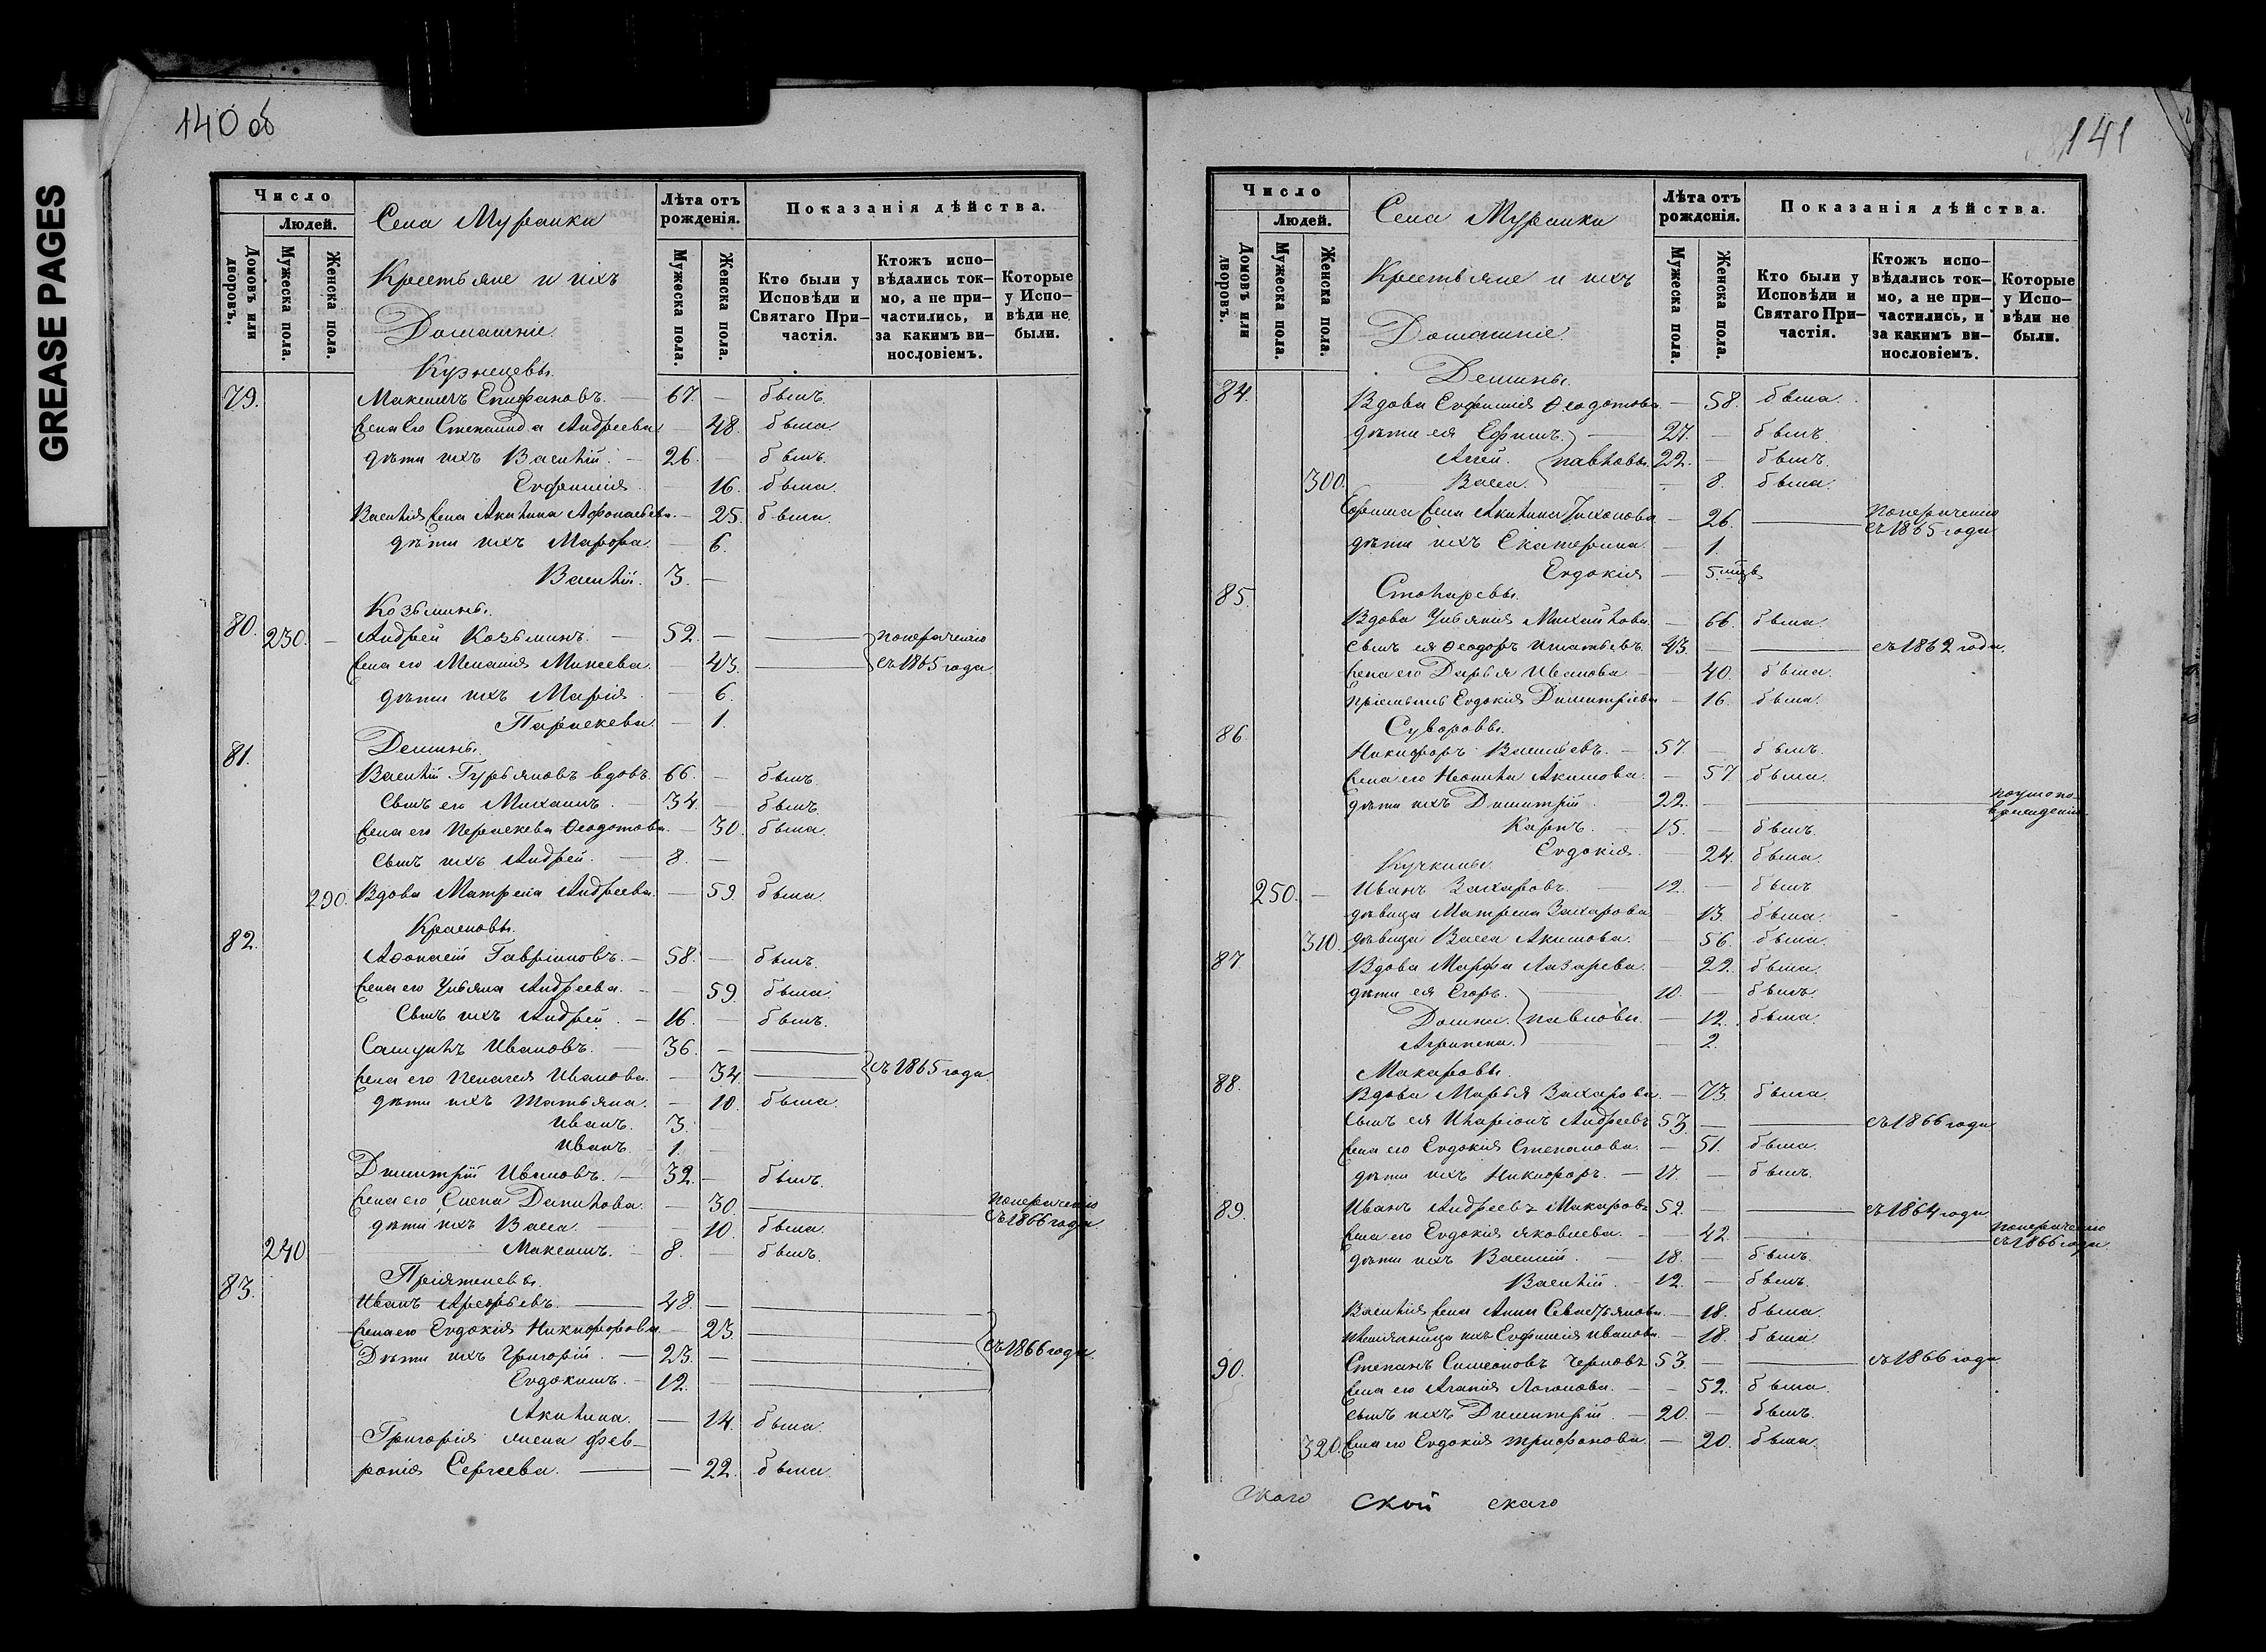 GREASE PAGES
140 об
Число
Людей.
Домовъ или дворовъ.
Мужеска пола.
Женска пола.
Села Муранки
Крестьяне и ихъ
Домашніи.
Лѣта отъ рожденія.
Мужеска пола.
Женска пола.
Показанія дѣйства.
Кто были у Исповѣди и Святаго Причастія.
Ктожъ исповѣдались токмо, а не причастились, и за какимъ винословіемъ.
Которые у Исповѣди не были.
Кузнецовы.
79. Максимъ Епифановъ. — 67. — былъ.
Жена его Степанида Андреева — 48. была.
дѣти ихъ Василій. — 26. — былъ.
Евфимія — 16. была.
Василія жена Акилина Афонасьева. — 25. была.
дѣти ихъ Марфа. — 6.
Василій. 3. —
Козьмины.
80. 230. — Андрей Козьминъ. — 52. — — понераченію
Жена его Меланія Михеева. — 43. — съ 1865 года.
дѣти ихъ Марія — 6.
Параскева — 1.
81. Демины.
Василій Гурьяновъ вдовъ. 66. — былъ.
Сынъ его Михаилъ. — 34. — былъ.
Жена его Параскева Ѳеодотова. — 30. была.
Сынъ ихъ Андрей. — 8. —
290. Вдова Матрена Андреева. — 59. была.
Красновы.
82. Афонасій Гавриловъ. — 58. — былъ.
Жена его Ульяна Андреева. — 59. была.
Сынъ ихъ Андрей. — 16. — былъ.
Самуилъ Ивановъ. — 36. — —
Жена его Пелагея Иванова. — 34. — съ 1865 года.
дѣти ихъ Татьяна. — 10. была.
Иванъ. 3. —
Иванъ. 1. —
Димитрій Ивановъ. — 32. — былъ.
Жена его Елена Данилова. — 30. — понераченію съ 1866 года.
дѣти ихъ Васса — 10. была.
240 — Максимъ. — 8. — былъ.
83. Пріятелевы.
Иванъ Арефьевъ. — 48. — —
Жена его Евдокія Никифорова. — 23. —
Дѣти ихъ Григорій. — 23. — — съ 1866 года.
Евдокимъ. — 12. — —
Акилина. — 14. была.
Григорія жена Фев-
ронія Сергеева. — 22. была.
141
Число
Людей.
Домовъ или дворовъ.
Мужеска пола.
Женска пола.
Села Муранки
Крестьяне и ихъ
Домашніе.
Лѣта отъ рожденія.
Мужеска пола.
Женска пола.
Показанія дѣйства.
Кто были у Исповѣди и Святаго Причастія.
Ктожъ исповѣдались токмо, а не причастились, и за какимъ винословіемъ.
Которые у Исповѣди не были.
Демины.
84. Вдова Евфимія Ѳеодотова. — 58. была.
дѣти ея Ефимъ. — 27. — былъ.
Агей. Павловы. 22. — былъ.
300. Васса. — 8. была.
Ефима жена Акилина Тихонова — 26. — понераченію съ 1865 года
дѣти ихъ Екатерина. — 1.
Евдокія — 5.
85. Столяровы.
Вдова Ульянія Михайлова. — 66. была.
Сынъ ея Ѳеодоръ Игнатьевъ. 43. — — съ 1862 года.
Жена его Дарья Иванова. — 40. была.
Пріемышъ Евдокія Димитріева — 16. была.
86. Суворовы.
Никифоръ Васильевъ. — 57. — былъ.
Жена его Неонила Акимова. — 57. была.
дѣти ихъ Димитрій. 22. — —
Карпъ. — 15. — былъ.
Евдокія. — 24. была.
Кучкины.
250. — Иванъ Захаровъ. — 12. — былъ
дѣвица Матрена Захарова — 13. была.
310. дѣвица Васса Акимова. — 56. была.
87. Вдова Марфа Лазарева. — 22. была.
дѣти ея Егоръ. — 10. — былъ.
Домна. Павловы. — 12. была.
Агрипена. — 2.
Макаровы.
88. Вдова Марья Захарова. — 73. была.
Сынъ ея Иларіонъ Андреевъ 53. — — съ 1866 года
Жена его Евдокія Степанова. — 51. была.
дѣти ихъ Никифоръ. — 17. — былъ.
89. Иванъ Андреевъ Макаровъ 52. — — съ 1864 года.
Жена его Евдокія Яковлева. — 42. — понераченію съ 1866 года.
дѣти ихъ Василій. 18. — былъ.
Василій. — 12. — былъ.
Василія жена Анна Севастьянова. — 18. была.
ихъ Евфимія Иванова. — 18. была.
90. Степанъ Симеоновъ Черновъ 53. — — съ 1866 года.
Жена его Агапія Логонова. — 52. была.
Сынъ ихъ Димитрій. — 20. — былъ.
320. Жена его Евдокія Трифонова. — 20. была.
Скаго ской скаго